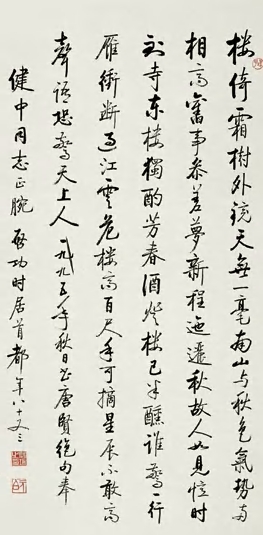 楼倚霜樹外鏡天無一毫南山与秋色氣勢兩
相高舊事參差夢新程迤邐秋故人如見憶時
到寺東楼獨酌芳春酒燈楼已半醺誰驚一行
雁衝斷過江雲危楼高百尺手可摘星辰不敢高
聲語恐驚天上人一九九五年秋日書唐賢絶句奉
健中同志正腕 啟功时居首都年八十又三